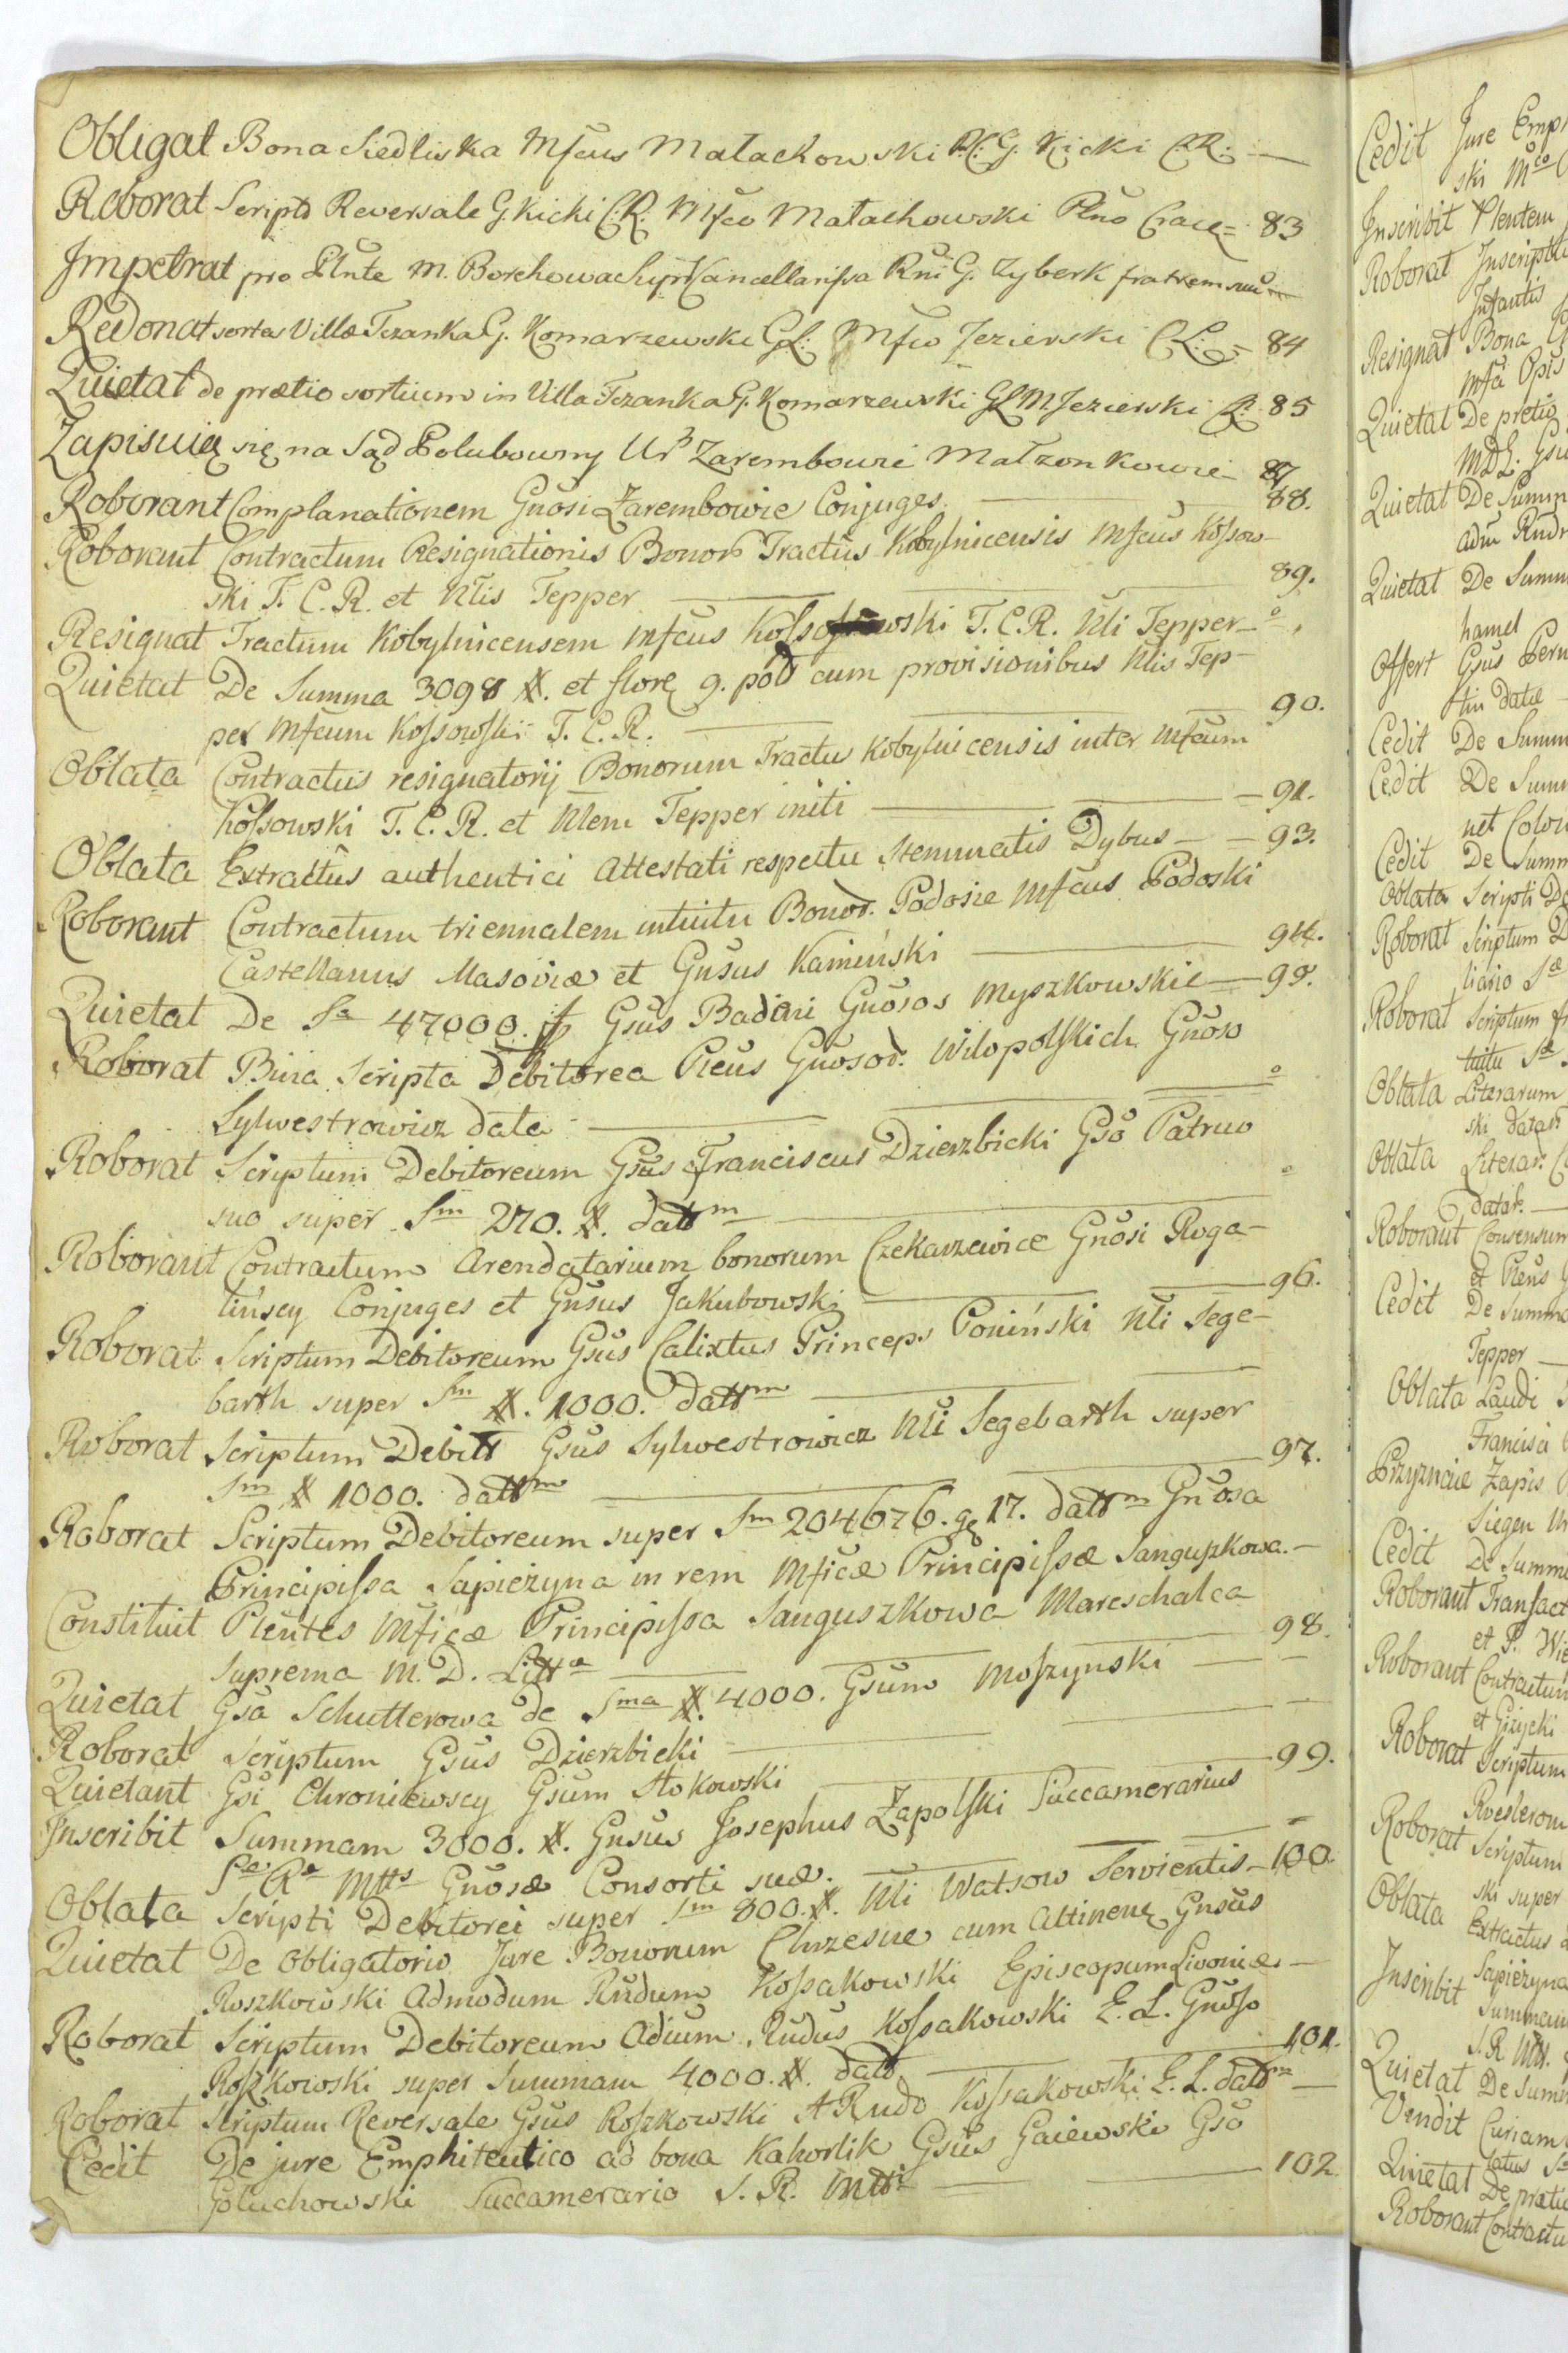 Obligat Bona Siedliska Mfcus Małachowski P.C. G. Kicki C.R. —
Roborat Scripto Reversale G Kicki C.R. Mfco Małachowski Plno Crace = 83
Impetrat pro Plnte M. Borchowa Kancellarissa Rni G. Zyberk fratrem suu —
Redonat sortes Villæ Tczanka G. Komarzewski GL. Mfco Jezierski C.L. = 84
Quietat de prætio sortium in Villa Tczanka G. Komarzewski GL M Jezierski 85
Zapisuią się na Sąd Polubowny Ur Zarembowie Małzonkowie 87
Roborant Complanationem Gnosi Zarembowie Conjuges — 88.
Roborant Contractum Resignationis Bonor Tractus Kobylnicensis Mfcus Kossow-
ski T. C. R. et Nlis Tepper — 89.
Resignat Tractum Kobylnicensem Mfcus Kossowski T.C.R. Nli Tepper — o
Quietat De Summa 3098 #. et flore 9. pol cum provisionibus Nlis Tep-
per Mfcum Kossowski T. C. R. — 90.
Oblata Contractus resignatorij Bonorum Tractus Kobylnicensis inter Mfcum
Kossowski T. C. R. et Nlem Tepper initi — 91.
Oblata Extractûs authentici Attestati respectu stemmatis Dybus — 93.
Roborant Contractum triennalem intuitu Bonor. Podosie Mfcus Podoski
Castellanus Masoviæ et Gnsus Kamiński — 94.
Quietat De Sa 47000. f Gsus Badini Gnosos Myszkowskie — 95.
Roborat Bina Scripta Debitorea Plens Gnosor. Wilopolskich Gnoso
Sylwestrowicz data — o
Roborat Scriptum Debitoreum Gsus Franciscus Dzierzbicki Gso Patruo
suo super Sm 270. #. dattm — o
Roborant Contractum Arendatarium bonorum Czekarzewice Gnosi Roga-
lińscy Conjuges et Gnsus Jakubowski — 96.
Roborat Scriptum Debitoreum Gsus Calixtus Princeps Poniński Nli Sege-
barth super Sm #. 1000. dattm —
Roborat Scriptum Debitt Gsus Sylwestrowicz Nli Segebarth super
Sm # 1000. dattm — 97.
Roborat Scriptum Debitoreum super Sm 204676. g 17. dattm Gnosa
Principissa Sapieżyna in rem Mficæ Principissæ Sanguszkowa. —
Constituit Plentes Mficæ Principissa Sanguszkowa Mareschalca
Suprema M. D. Litta — 98.
Quietat Gsa Schutterowa de Sma #. 4000. Gsum Moszynski —
Roborat Scriptum Gsus Dzierzbicki —
Quietant Gsi Chroniewscy Gsum Stokowski — 99.
Inscribit Summam 3000. #. Gnsus Josephus Zapolski Succamerarius
Sæ Ræ Mtts Gnosæ Consorti suæ. —
Oblata Scripti Debitorei super Sm 800. #. Nli Watsow Servientis — 100
Quietat De obligatorio Jure Bonorum Chrzesne cum attinen Gnsus
Roszkowski Admodum Rndum Kossakowski Episcopum Livoniæ —
Roborat Scriptum Debitoreum Adium Rndus Kossakowski E. L. Gnoso
Roszkowski super Summam 4000. #. datt — 101.
Roborat Scriptum Reversale Gsus Roszkowski A Rndo Kossakowski E. L. dattm —
Cedit De jure Emphiteutico ad bona Kahorlik Gsus Gaiewski Gso
Goluchowski Succamerario S. R. Mtti — 102.
Cedit Jure Emp
ski Mco
Inscribit Plentem
Roborat Inscript
Infantis
Resignat Bona
Mfa Opis
Quietat De pretio
MDL. Gsu
Quietat De Summ
adm Rndr
Quietat De Summ
hamel
Offert Gsus Pern
tin datæ
Cedit De Summ
Cedit De Sum
net Colon
Cedit De Summ
Oblata Scripti De
Roborat Scriptum D
liario Sæ
Roborat Scriptum
tuitu Sæ
Oblata Literarum
ski datar
Oblata Literar.
datar.
Roborant Consensum
et Plens
Cedit De Summa
Tepper —
Oblata Laudi
Francisci
Przyznaie Zapis
Siegen
Cedit De Summ
Roborant Transact
et P. Wie
Roborant Contractum
et Gizycki
Roborat Scriptum
Roesterom
Roborat Scriptum
ski super
Oblata Extractus
Sapieżyna
Inscribit Summam
S. R. Mtt.
Quietat De Summ
Vendit Curiam
Quietat De prætio
Roborant Contractu